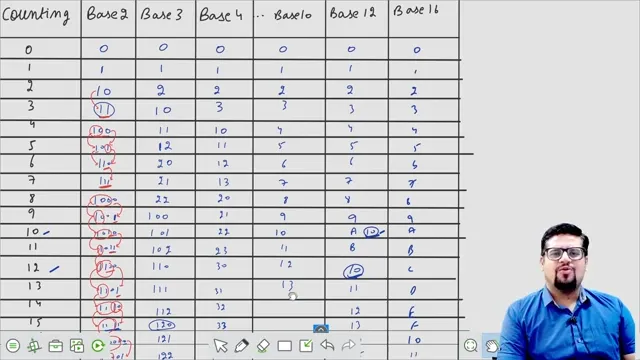 Counting Base 2 Base 3 Base 4 .. Base 10 Base 12 Base 16
0 0 0 0 0 0 0
1 1 1 1 1 1 1
2 10 2 2 2 2 2
3 11 10 3 3 3 3
4 100 11 10 4 4 4
5 101 12 11 5 5 5
6 110 20 12 6 6 6
7 111 21 13 7 7 7
8 1000 22 20 8 8 8
9 1001 100 21 9 9 9
10 1010 101 22 10 A 10 A
11 1011 102 23 11 B B
12 1100 110 30 12 10 C
13 1101 111 31 13 11 D
14 1110 112 32 12
15 1111 120 33 13 F
121 10
122 11